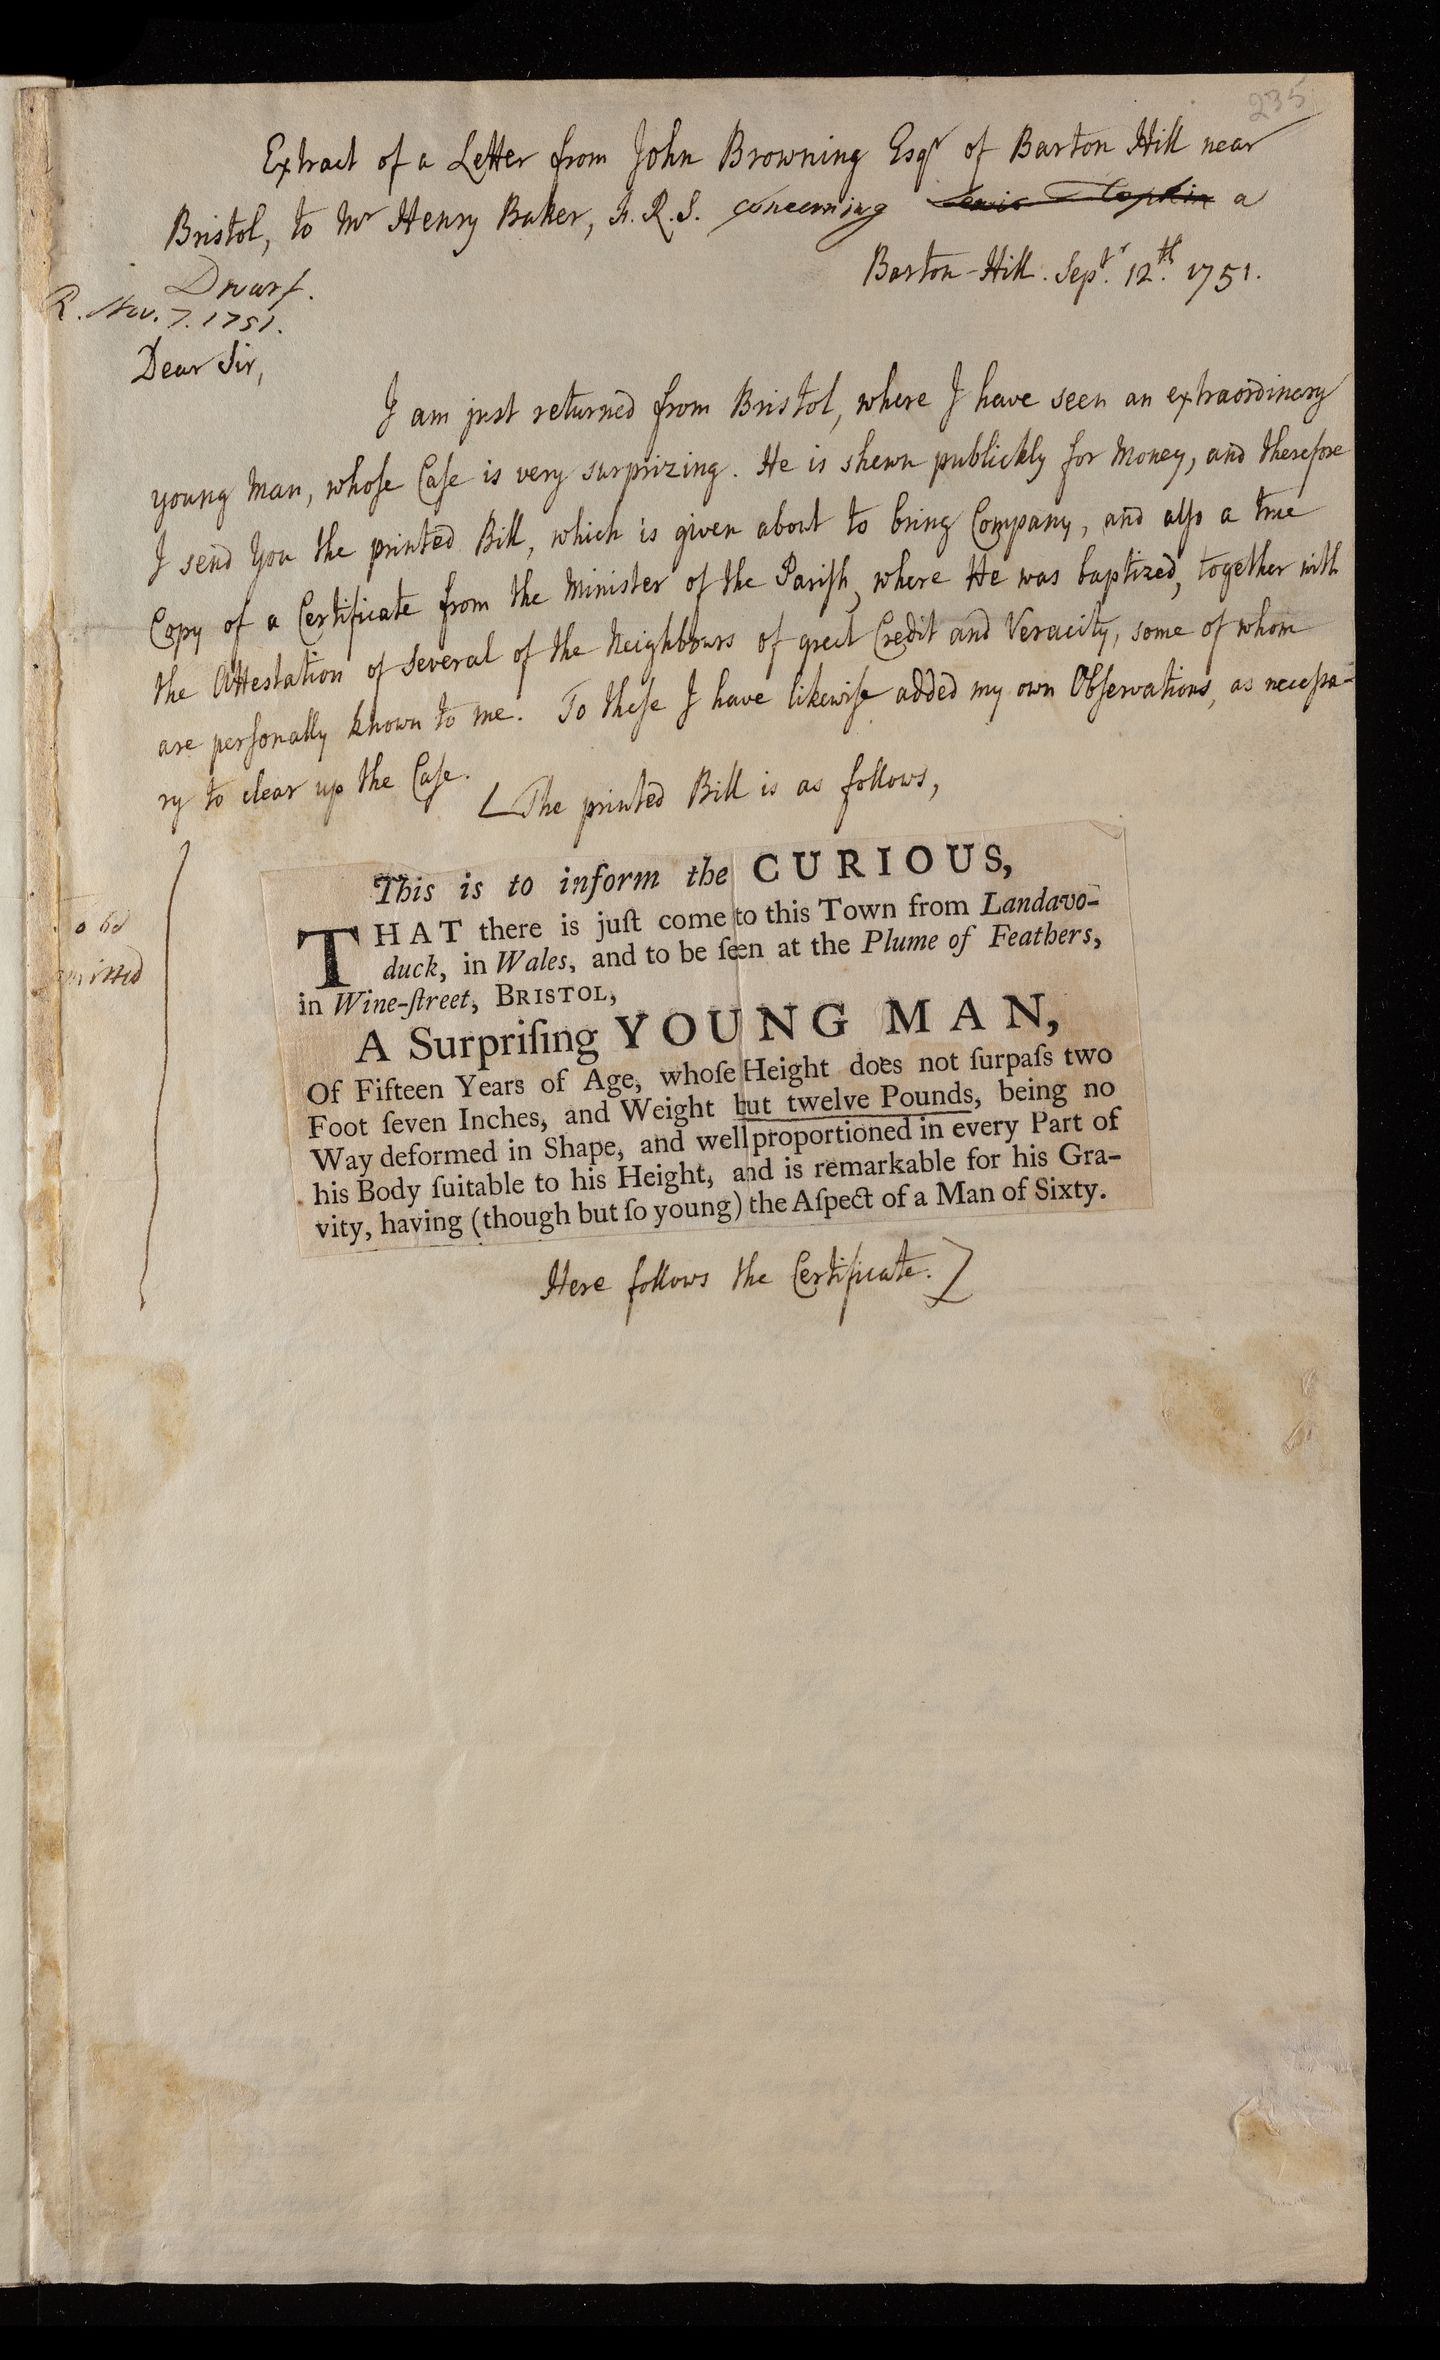 235
Extract of a Letter from John Browning Esqr of Barton Hill near
Bristol, to Mr Henry Baker, F.R.S. concerning Lewis Hopkin a
Dwarf.
Barton-Hill. Septr. 12th. 1751.
R. Nov. 7. 1751.
Dear Sir,
I am just returned from Bristol, where I have seen an extraordinary
young Man, whoſe Caſe is very surprizing. He is shewn publickly for Money, and therefore
I send You the printed Bill, which is given about to bring Company, and alſo a true
Copy of a Certificate from the Minister of the Pariſh, where He was baptized, together with
the Attestation of several of the Neighbours of great Credit and Veracity, some of whom
are perſonally known to me. To theſe I have likewiſe added my own Obſervations, as neceſsa-
ry to clear up the Caſe.
[The printed Bill is as follows,
This is to inform the CURIOUS,
THAT there is juſt come to this Town from Landavo-
duck, in Wales, and to be ſeen at the Plume of Feathers,
in Wine-ſtreet, BRISTOL,
A Surpriſing YOUNG MAN,
Of Fifteen Years of Age, whoſe Height does not ſurpaſs two
Foot ſeven Inches, and Weight but twelve Pounds, being no
Way deformed in Shape, and well proportioned in every Part of
his Body ſuitable to his Height, and is remarkable for his Gra-
vity, having (though but ſo young) the Aſpect of a Man of Sixty.
Here follows the Certificate.]